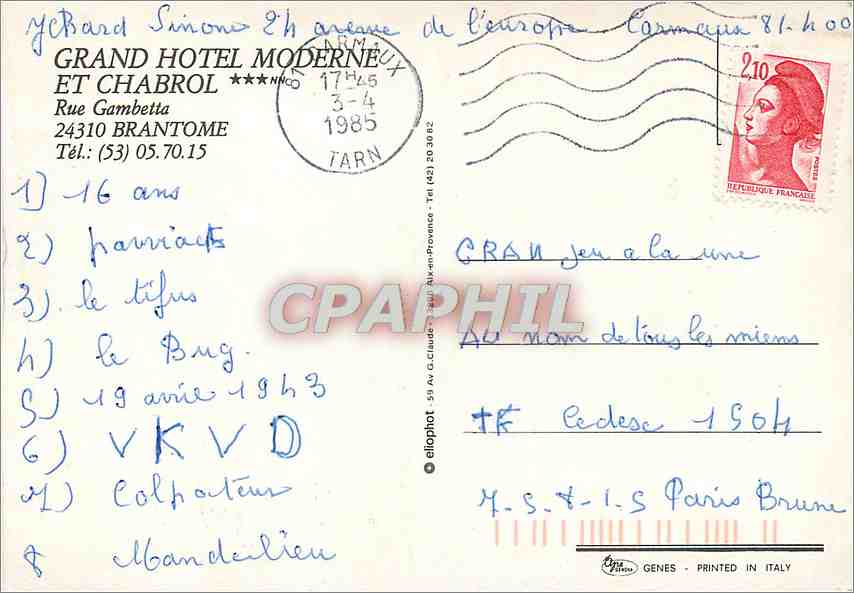 Simone 24 avenue de l'europe Carmaux 81.400
GRAND HOTEL MODERNE
ET CHABROL ★★★NN
Rue Gambetta
24310 BRANTOME
Tél.: (53) 05.70.15
81 CARMAUX
17H45
3-4
1985
TARN
2,10
POSTES
REPUBLIQUE FRANÇAISE
1) 16 ans
2)
3) le tifus
4) le Bug.
5) 19 avril 1943
6) V K V D
7) Colpateur
8 Mandelieu
eliophot - 59 Av G.Claude - 13100 Aix-en-Provence - Tel (42) 20 30 82
GRAN jeu a la une
AU nom de tous les miens
TF Cedex 1504
7-5-8-1-5 Paris Brune
CPAPHIL
GENES - PRINTED IN ITALY